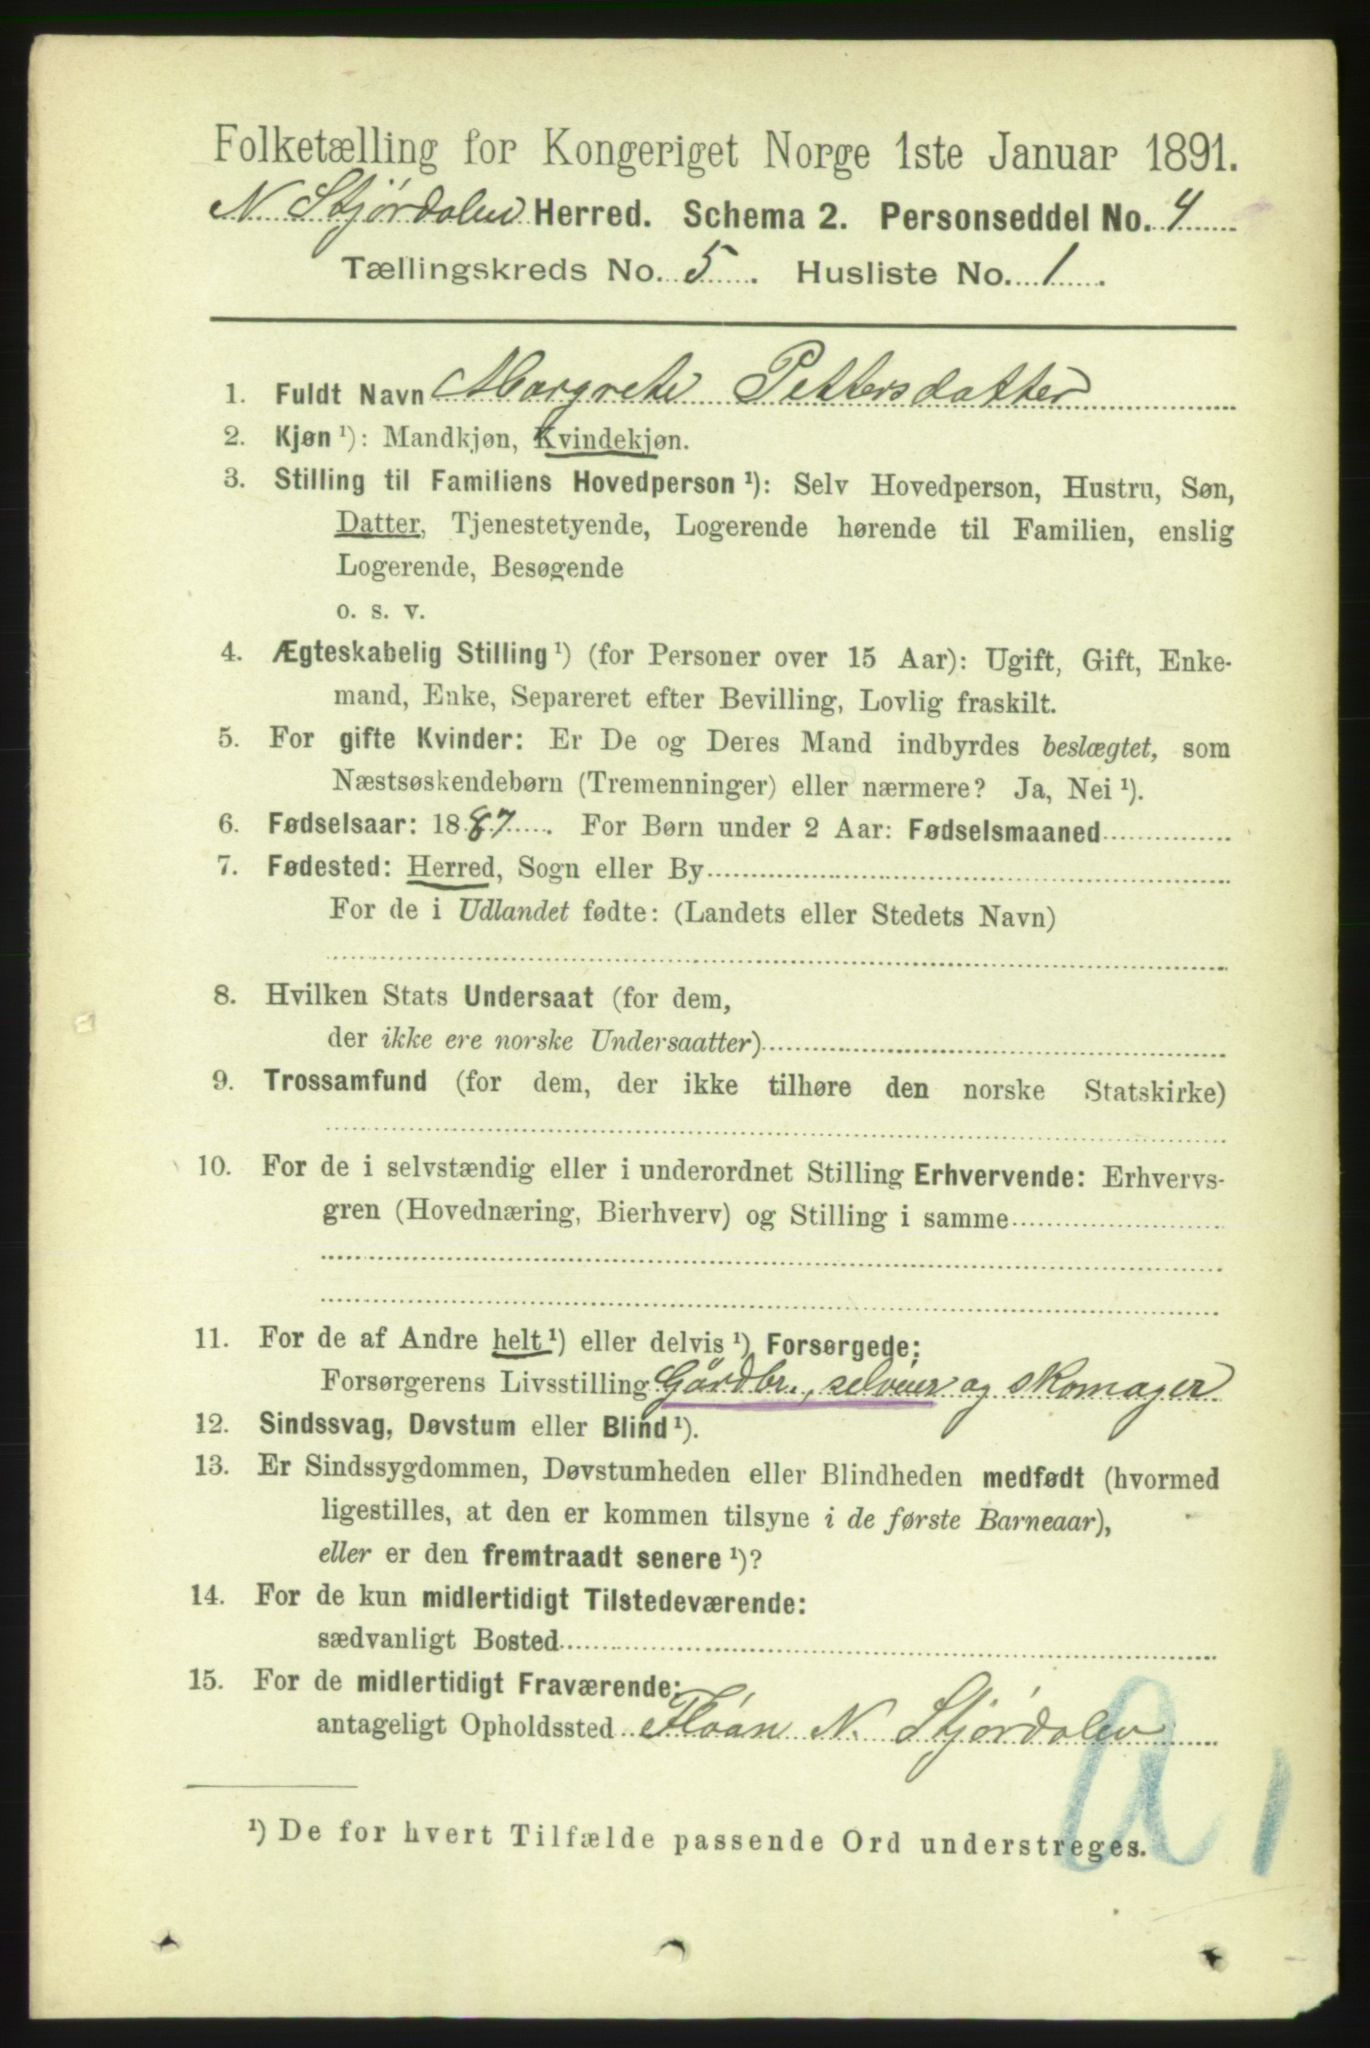 Folketælling for Kongeriget Norge 1ste Januar 1891.
N. Stjørdalen Herred. Schema 2. Personseddel No. 4
Tællingskreds No. 5. Husliste No. 1.
1. Fuldt Navn Margrete Pettersdatter
2. Kjøn ¹): Mandkjøn, Kvindekjøn.
3. Stilling til Familiens Hovedperson ¹): Selv Hovedperson, Hustru, Søn,
Datter, Tjenestetyende, Logerende hørende til Familien, enslig
Logerende, Besøgende
o. s. v.
4. Ægteskabelig Stilling ¹) (for Personer over 15 Aar): Ugift, Gift, Enke-
mand, Enke, Separeret efter Bevilling, Lovlig fraskilt.
5. For gifte Kvinder: Er De og Deres Mand indbyrdes beslægtet, som
Næstsøskendebørn (Tremenninger) eller nærmere? Ja, Nei ¹).
6. Fødselsaar: 1887. For Børn under 2 Aar: Fødselsmaaned
7. Fødested: Herred, Sogn eller By
For de i Udlandet fødte: (Landets eller Stedets Navn)
8. Hvilken Stats Undersaat (for dem,
der ikke ere norske Undersaatter)
9. Trossamfund (for dem, der ikke tilhøre den norske Statskirke)
10. For de i selvstændig eller i underordnet Stilling Erhvervende: Erhvervs-
gren (Hovednæring, Bierhverv) og Stilling i samme
11. For de af Andre helt ¹) eller delvis ¹) Forsørgede:
Forsørgerens Livsstilling Gårdbr., selveier og skomager
12. Sindssvag, Døvstum eller Blind ¹).
13. Er Sindssygdommen, Døvstumheden eller Blindheden medfødt (hvormed
ligestilles, at den er kommen tilsyne i de første Barneaar),
eller er den fremtraadt senere ¹)?
14. For de kun midlertidigt Tilstedeværende:
sædvanligt Bosted
15. For de midlertidigt Fraværende:
antageligt Opholdssted Flóan N. Stjórdalen
¹) De for hvert Tilfælde passende Ord understreges.
a 1